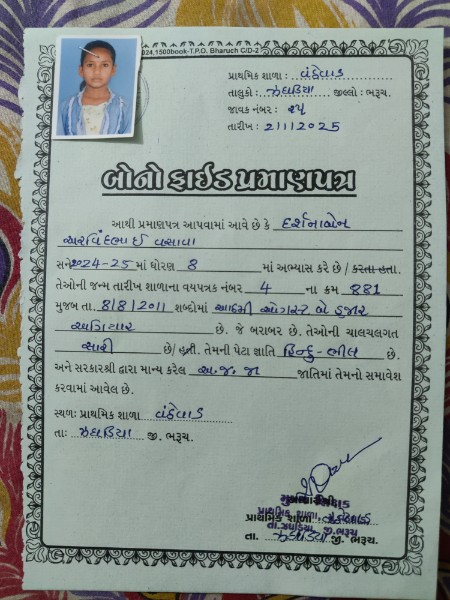 2024,1500book-T.P.O. Bharuch C/D-2
પ્રાથમિક શાળા : વંઠેવાડ
તાલુકો : ઝઘડિયા જીલ્લો : ભરૂચ.
જાવક નંબર : ૨૫
તારીખ : 2/11/2025
બોનો ફાઈડ પ્રમાણપત્ર
આથી પ્રમાણપત્ર આપવામાં આવે છે કે દર્શનાબેન
અરવિંદભાઈ વસાવા
સને 2024-25 માં ધોરણ 8 માં અભ્યાસ કરે છે / કરતા હતા.
તેઓની જન્મ તારીખ શાળાના વયપત્રક નંબર 4 ના ક્રમ 881
મુજબ તા. 8/8/2011 શબ્દોમાં આઠમી ઓગસ્ટ બે હજાર
અગિયાર છે. જે બરાબર છે. તેઓની ચાલચલગત
સારી છે/ હતી. તેમની પેટા જ્ઞાતિ હિન્દુ-ભીલ છે.
અને સરકારશ્રી દ્વારા માન્ય કરેલ અ.જ.જા જાતિમાં તેમનો સમાવેશ
કરવામાં આવેલ છે.
સ્થળ: પ્રાથમિક શાળા વંઠેવાડ
તાઃ ઝઘડિયા જી. ભરૂચ.
પ્રાથમિક શાળા
તા. ઝઘડિયા જી. ભરૂચ.